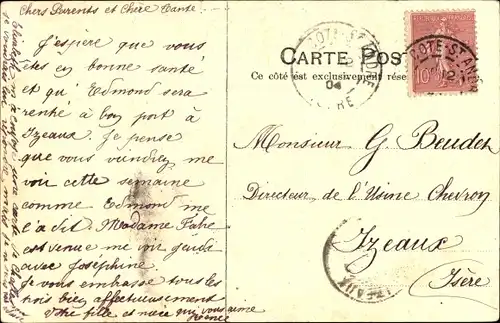 Chers Parents et Chère Tante
J'espère que vous
êtes en bonne santé
et qu'Edmond sera
rentré à bon port à
Izeaux. Je pense
que vous viendrez me
voir cette semaine
comme Edmond me
l'a dit. Madame Fabre
est venue me voir jeudi
avec Joséphine.
Je vous embrasse tous les
trois bien affectueusement
Votre fille et nièce qui vous aime
Renée
CARTE POST
Ce côté est exclusivement rése
COTE-ST-ANDRE
04
ISERE
COTE-ST-ANDR
12
10
Monsieur G Boudet
Directeur de l'Usine Chevron
Izeaux
(Isère)
IZEAUX